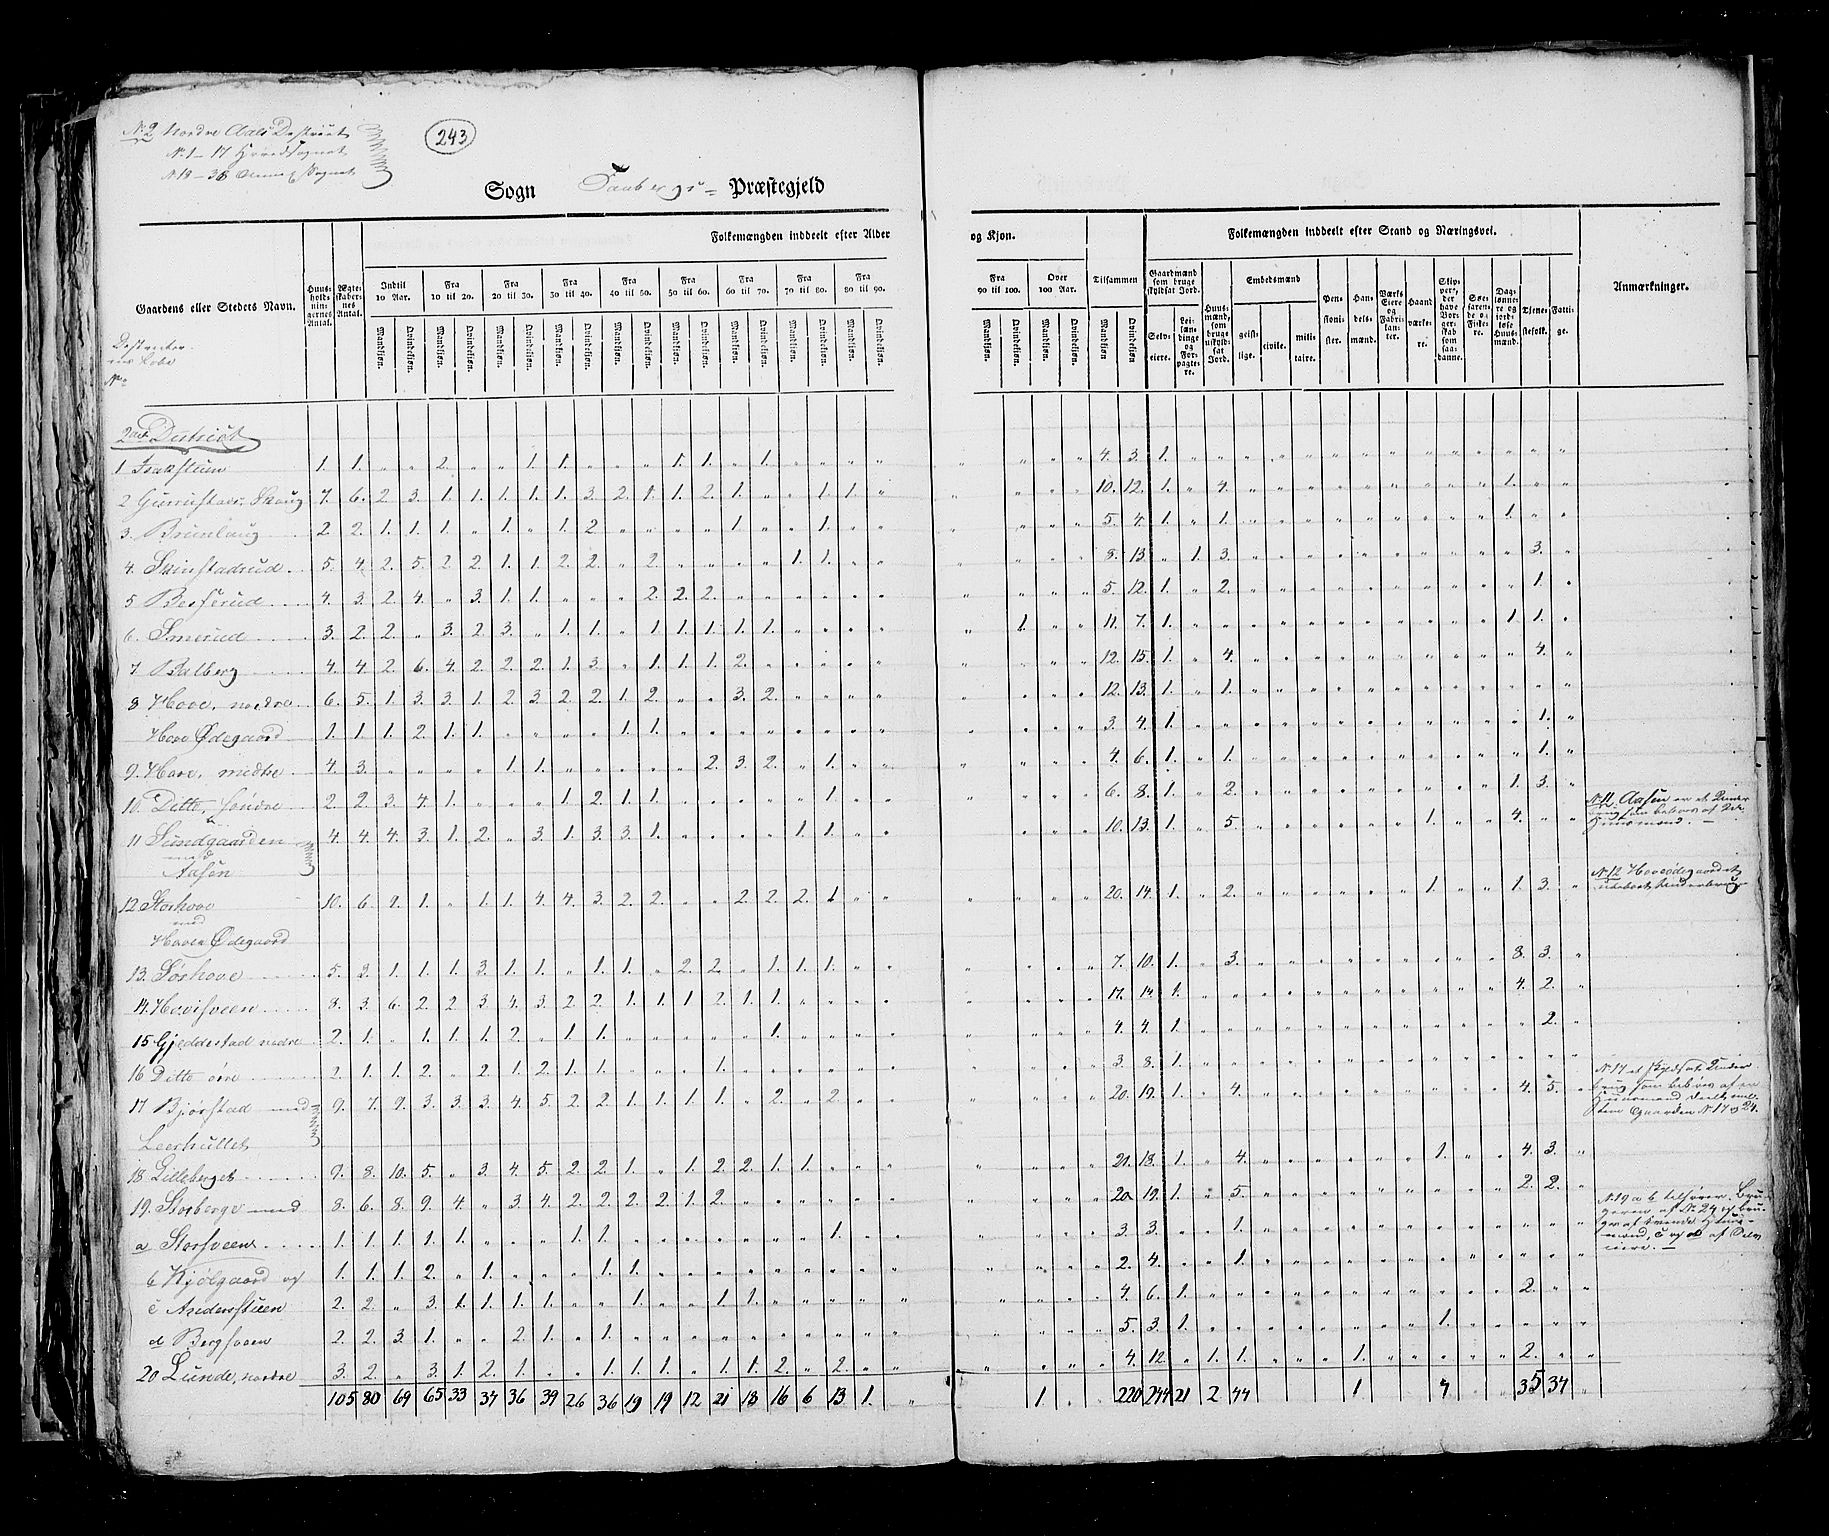 No 2 Nordre Aals District
No 1 – 17 Hovedsognet
No 18 – 36 Sognet
243
Sogn Faabergs Præstegjeld
Gaardens eller Stedets Navn.
Huusholdningernes Antal.
Ægteskabernes Antal.
Folkemængden inddeelt efter Alder og Kjøn.
Indtil 10 Aar. Fra 10 til 20. Fra 20 til 30. Fra 30 til 40. Fra 40 til 50. Fra 50 til 60. Fra 60 til 70. Fra 70 til 80. Fra 80 til 90. Fra 90 til 100. Over 100 Aar. Tilsammen
Mandkjøn. Qvindekjøn.
Folkemængden inddeelt efter Stand og Næringsvei.
Gaardmænd som bruge skyldsat Jord.
Selveiere. Leilændinge og Forpagtere.
Huusmænd, som bruge uskyldsat Jord.
Embedsmænd
geistlige. civile. militaire.
Pensionister.
Handelsmænd.
Værks Eiere og Fabrikanter.
Haandværkere.
Skippere, der have Borgerskab som saadanne.
Søefarende og Fiskere.
Daglønnere og jordløse Huusmænd.
Tjenestefolk.
Fattige.
Anmærkninger.
2det District
1 1. 1. „ „ 2. „ „ 1. 1. „ „ „ 1. 1. „ 1. „ „ „ „ „ „ „ „ 4. 3. 1.
2 Skoug 7. 6. 2. 3. 1. 1. 1. 1. 1. 3. 2. 1. 1. 2. 1. „ „ 1. 1. „ „ „ „ „ 10. 12. 1. „ 4. 1.
3. Brunlaug 2. 2. 1. 1. 1. „ 1. „ 1. 2 „ „ „ „ 1. „ „ 1. „ „ „ „ „ „ 5. 4. 1. „ 1. 1.
4. Skinstadrud 5. 4. 2. 5. 2. 2. 1. 1. 2. 2. „ 2. „ „ „ „ 1. 1. „ „ „ „ „ „ 8. 13. „ 1. 3. 3.
5 Besserud 4. 3. 2. 4. „ 3. 1. 1. „ „ „ 2. 2. 2. „ „ „ „ „ „ „ „ „ „ 5. 12. 1. „ 2. 1.
6. Smerud 3. 2. 2. „ 3. 2. 3. „ 1. 1. „ 1. 1. 1. 1. 1. „ „ „ „ „ 1. „ „ 11. 7. 1. 1. 1.
7 Balberg 4. 4. 2. 6. 4. 2. 2. 2. 1. 3. „ 1. 1. 1. 2. „ „ „ „ „ „ „ „ „ 12. 15. 1. „ 4. 4.
8 Hove, nordre 6. 5. 1. 3. 3. 1. 2. 3. 2. 2. 1. 2. „ „ 3. 2. „ „ „ „ „ „ „ „ 12. 13. 1. „ 1.
Hove Ødegaard 1. 1. 1. 2. 1. 1. „ „ „ „ 1. 1. „ „ „ „ „ „ „ „ „ „ „ „ 3. 4. 1. 1.
9. Hove, midtre 4. 3. „ „ „ „ 1. 1. „ „ „ „ „ 2. 3. 2. „ 1. „ „ „ „ „ „ 4. 6. 1. „ 1. 1.
10. Ditto, søndre 2. 2. 3. 4. 1. „ „ „ 1. 2. 1. 1. „ „ „ „ „ 1. „ „ „ „ „ „ 6. 8. 1. „ 2. 1. 3.
11 Sundgaarden 4. 4. 4. 3. 1. 2. „ 3. 1. 3. 3. 1. „ „ „ „ 1. 1. „ „ „ „ „ „ 10. 13. 1. „ 5. 1. 4.
med
Aasen
No 11 Aasen er et Underbrug som beboes af
Huusmænd. —
12 Storhove 10. 6. 9. 1. „ 1. 1. 4. 4. 3. 2. 2. „ „ 2. 2. 2. 1. „ „ „ „ „ „ 20. 14. 1. „ 2. 1. 1. 3.
med
Hoven Ødegaard
No 12 Hoveødegaard et
ubeboet Underbrug
13. Sorhove 5. 3. 1. 1. 1. 3. 1. 1. „ 1. 1. „ 2. 2. „ 1. 1. 1. „ „ „ „ „ „ 7. 10. 1. „ 3. 8. 3.
14. Hovisveen 8. 3. 6. 2. 2. 3. 4. 3. 2. 2. 1. 1. 1 2. 1. 1. „ „ „ „ „ „ „ „ 17. 14. 1. 4. 2.
15 Gjeddestad nedre 2. 1. „ 1. 1. 1. 2. „ 1. 1. „ „ „ „ „ 1. „ „ „ „ „ „ „ „ 4. 4. 1. 2.
16 Ditto øvre 2. 1. 1. 2. „ 2. 1. 2. 1. 1. „ „ „ 1. „ „ „ „ „ „ „ „ „ „ 3. 8. 1.
17 Bjørstad med 9. 7. 9. 3. 3. 3. 4. 5. 2. 2. 1. 1. 1. 1. „ 2. „ 2. „ „ „ „ „ „ 20. 19. 1. „ 4. 4. 5.
Leerhullet
No 17 et skyldsat Underbrug som beboes af en
Huusmand deelt mellem Gaarden No 17 og 24.
18 Lilleberget 9. 8. 10. 5. „ 3. 4. 5. 2. 2. 1. „ 1. 2. 2. 1. 1. „ „ „ „ „ „ „ 21. 18. 1. „ 4. 1. 4. 3.
19. Storberge med 8. 6. 8. 9. 4. „ 3. 4. 2. 2. 2. 2. 1. 2. „ „ „ „ „ „ „ „ „ „ 20 19. 1. „ 5. 2. 2.
a Storsveen 1. 1. 1. 1. 1. „ „ „ 1. 1. „ „ „ „ „ „ „ 1. „ „ „ „ „ „ 3. 3. „ „ 1.
b Kjølgaard og 1. 1. 1. 2. „ 1. „ „ „ 1. 1. „ „ „ „ „ „ „ „ „ „ „ „ „ 2. 4. „ „ 1.
c Anderstuen 2. 2. „ 3. 1. 1. 1. 1. „ „ 1. „ „ 1. 1. „ „ „ „ „ „ „ „ „ 4. 6. 1. 2.
d Bergsveen 2. 2. 3. 1. „ „ 2. 1. „ 1. „ „ „ „ „ „ „ „ „ „ „ „ „ „ 5. 3. 1. 1.
No 19 a b tilhører Brugeren af No 24 og bruges af tvende Huusmænd, c og d af Selveiere. —
20 Lunde, nordre 3. 2. „ 3. 1. 2. 1. „ „ 1. 1. 1. „ 1. 1. 2. „ 2. „ „ „ „ „ „ 4. 12. „ 1. 1. 1. 2.
105 80 69 65 33 34 36 39 26 36 19 19 12 21 18 16 6 13 1. „ 1 220 244 21 2 44 1 4 35 34